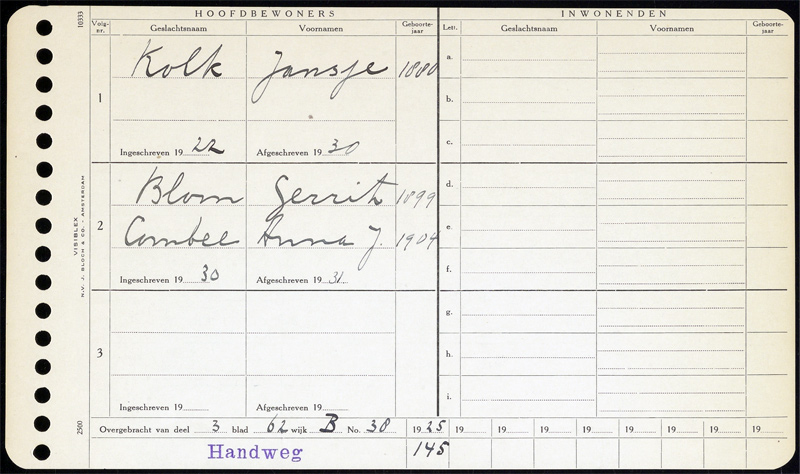 HOOFDBEWONERS INWONENDEN
Volg-nr. Geslachtsnaam Voornamen Geboorte-jaar Lett. Geslachtsnaam Voornamen Geboorte-jaar
10333
1
Kolk Jansje 1880
Ingeschreven 1922 Afgeschreven 1930
2
Blom Gerrit 1899
Combee Anna J. 1904
Ingeschreven 1930 Afgeschreven 1931
3
Ingeschreven 19 Afgeschreven 19
a.
b.
c.
d.
e.
f.
g.
h.
i.
VISIBLEX
N.V. J. BLOCH & CO. - AMSTERDAM
2500
Overgebracht van deel 3 blad 62 wijk B No. 38 1925 19 19 19 19 19 19 19 19
Handweg 145